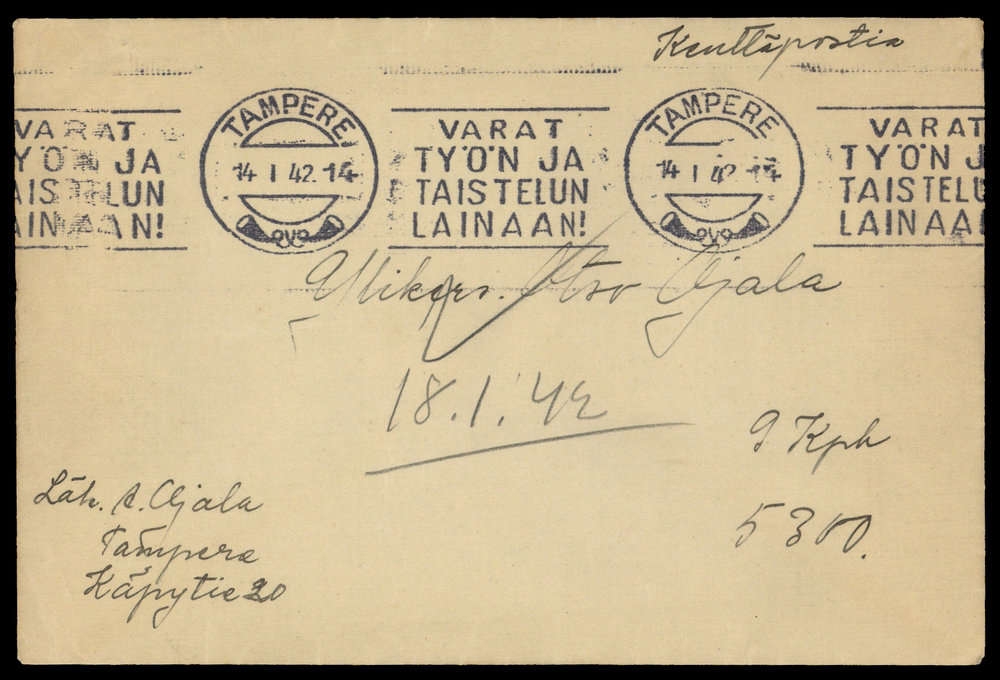 Kenttäpostia
VARAT
TYÖN JA
TAISTELUN
LAINAAN!
TAMPERE
14 I 42 -14
VARAT
TYÖN JA
TAISTELUN
LAINAAN!
TAMPERE
14 I 42 -14
VARAT
TYÖN J
TAISTELU
LAINAAN
Ylikers. Otso Ojala
18.1.42
9 Kph
5300.
Läh. A. Ojala
Tampere
Käpytie 20